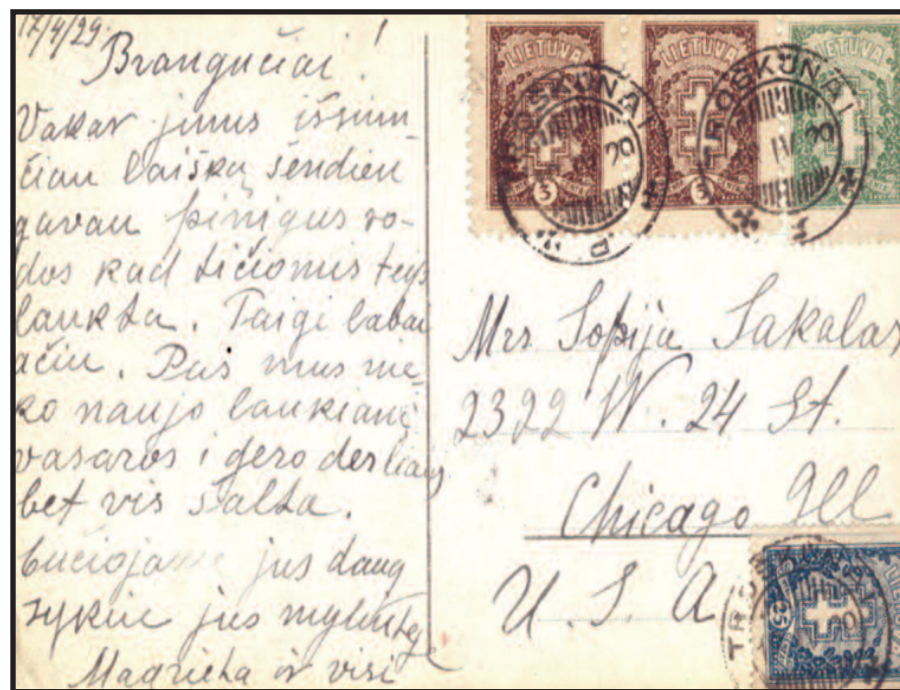 17/4/29.
Brangučiai!
Vakar jumus išsiun-
čiau laišką, šendien
gavau pinigus ro-
dos kad
laukta. Taigi labai
ačiu. Pas mus nie-
ko naujo laukiame
vasaros i gero derliaus
bet vis šalta.
bučiojame jus daug
sykiu jus mylinti
Magrieta ir visi
LIETUVA
3
LIETUVA
3
LIETUVA
TROŠKŪNAI
IV 29
TROŠKŪNAI
IV 29
Mrs Sofija Sakalas
2322 W. 24 St.
Chicago Ill
U. S. A.
TROŠKŪNAI
LIETUVA
25